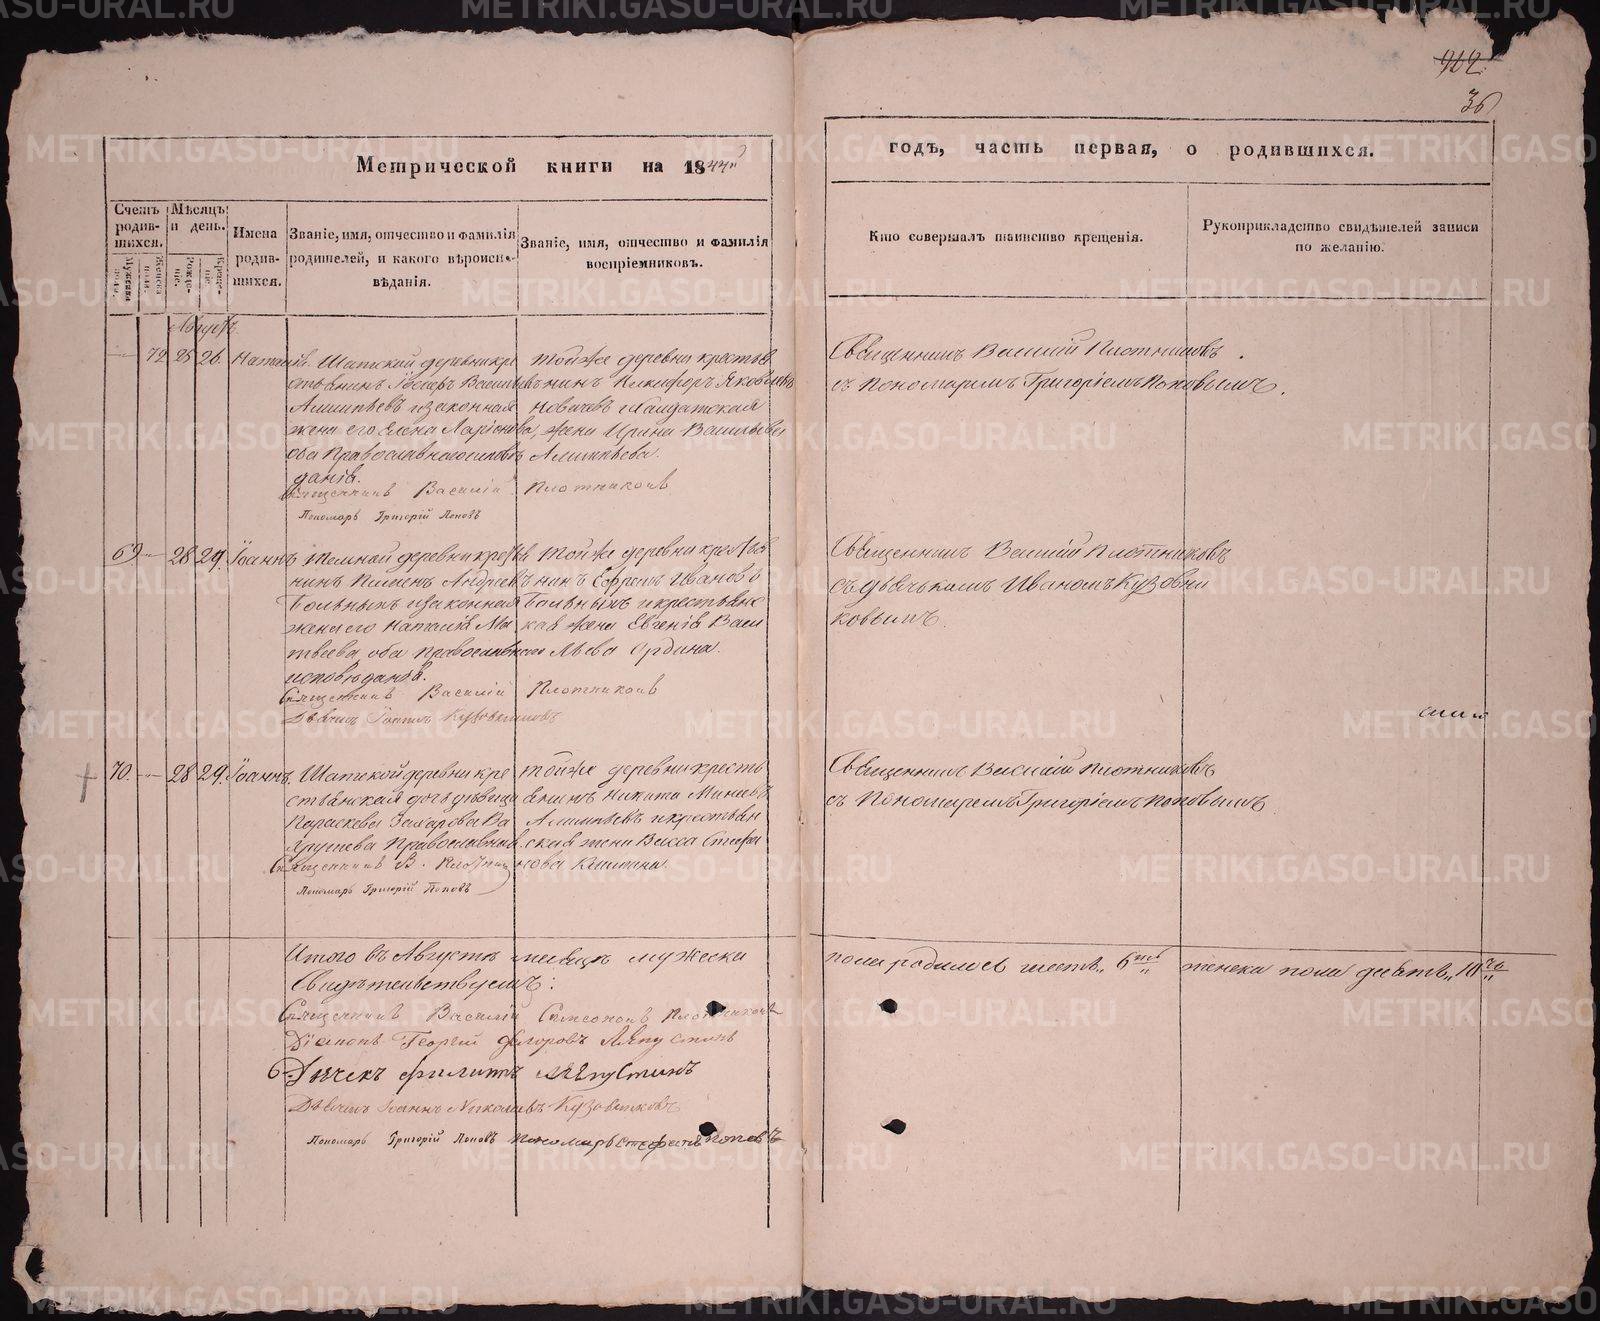 912.
36
Метрической книги на 1844й
годъ, часть первая, о родившихся.
Счетъ родившихся.
Мужска пола.
Женска пола
Мѣсяцъ и день.
Рожденіе.
Крещеніе.
Имена родившихся.
Званіе, имя, отчество и фамилія родителей, и какого вѣроисповѣданія.
Званіе, имя, отчество и фамилія воспріемниковъ.
Кто совершалъ таинство крещенія.
Рукоприкладство свидѣтелей записи по желанію.
Августъ
72 25 26 Наталія
деревни кре
стьянинъ Васильевъ
и законная
жена его Елена Ларіонова,
оба православнаго исповѣ
данія.
Священникъ Василій Плотниковъ
Пономарь Григорій Поповъ
Той же деревни крестья
нинъ Никифоръ Яковлевъ
и солдатская
жена Ирина Васильева
Священникъ Василій Плотниковъ
съ Пономаремъ Григоріемъ Поповымъ.
69 28 29. Іоаннъ
деревни крестья
нинъ Пименъ Андреевъ
Больныхъ и законная
жена его Наталія Ма
твеева, оба православнаго
исповѣданія.
Священникъ Василій Плотниковъ
Дьячекъ Іоаннъ Кузовниковъ
Той же деревни крестья
нинъ Ефремъ Ивановъ
Больныхъ и крестьянс
кая жена Евгенія Васи
льева Ордина.
Священникъ Василій Плотниковъ
съ дьячькомъ Иваномъ Кузовни
ковымъ.
70. 28 29. Іоаннъ.
деревни кре
стьянская дочь девица
Параскева Захарова
Православная.
Священникъ В. Плотниковъ
Пономарь Григорій Поповъ
Той же деревни кресть
янинъ Никита Минеевъ
и крестьян
ская жена Васса Стефа
нова
Священникъ Василій Плотниковъ
съ Пономаремъ Григоріемъ Поповымъ
Итого въ Августѣ месяцѣ мужеска пола родилось шесть, 6ть женска пола десять, 10ть
Свидѣтельствуемъ:
Священникъ Василій Симеоновъ Плотниковъ
Діаконъ Георгій Федоровъ Ляпустинъ
Дячекъ Филипъ Ляпустинъ
Дьячекъ Іоаннъ Николаевъ Кузовниковъ
Пономарь Григорій Поповъ Пономарь Стефанъ Поповъ
METRIKI.GASO-URAL.RU